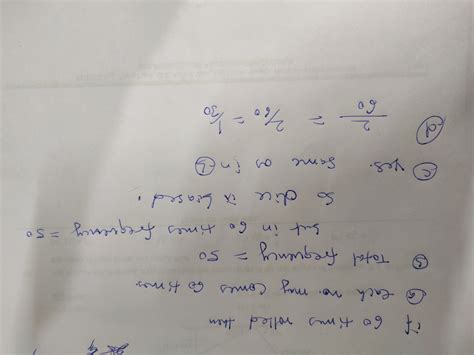 60 times rolled then
if
ⓐ each no. my comes 60 times
ⓑ Total frequency = 50
but in 60 times frequency = 50
So dice is biased.
ⓒ Yes. Same as in ⓑ
ⓓ 2/60 = 2/60 = 1/30